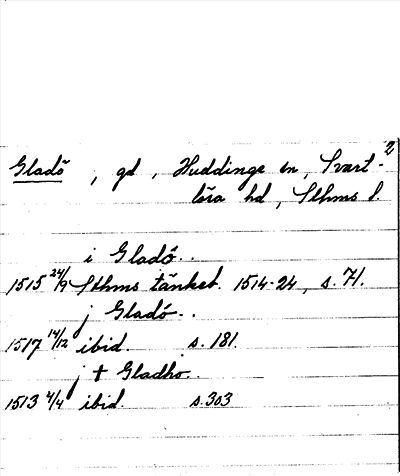 2
Gladö, gd, Huddinge sn, Svart-
lösa hd, Sthms l.
i Gladö..
1515 24/9 Sthms tänkeb. 1514-24, s. 71.
j Gladö..
1517 14/12 ibid. s. 181.
j + Gladho..
1513 4/4 ibid. s. 303